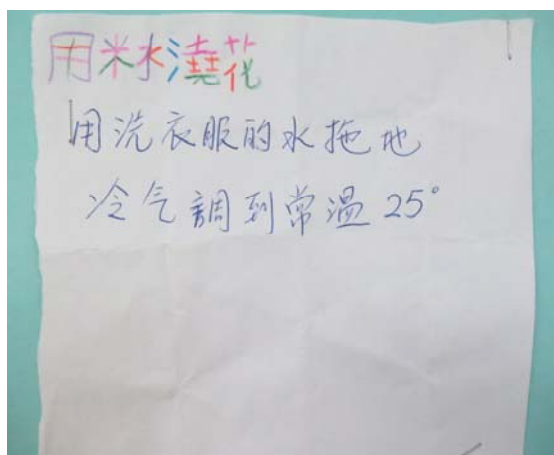 用米水澆花
用洗衣服的水拖地
冷气調到常溫25°